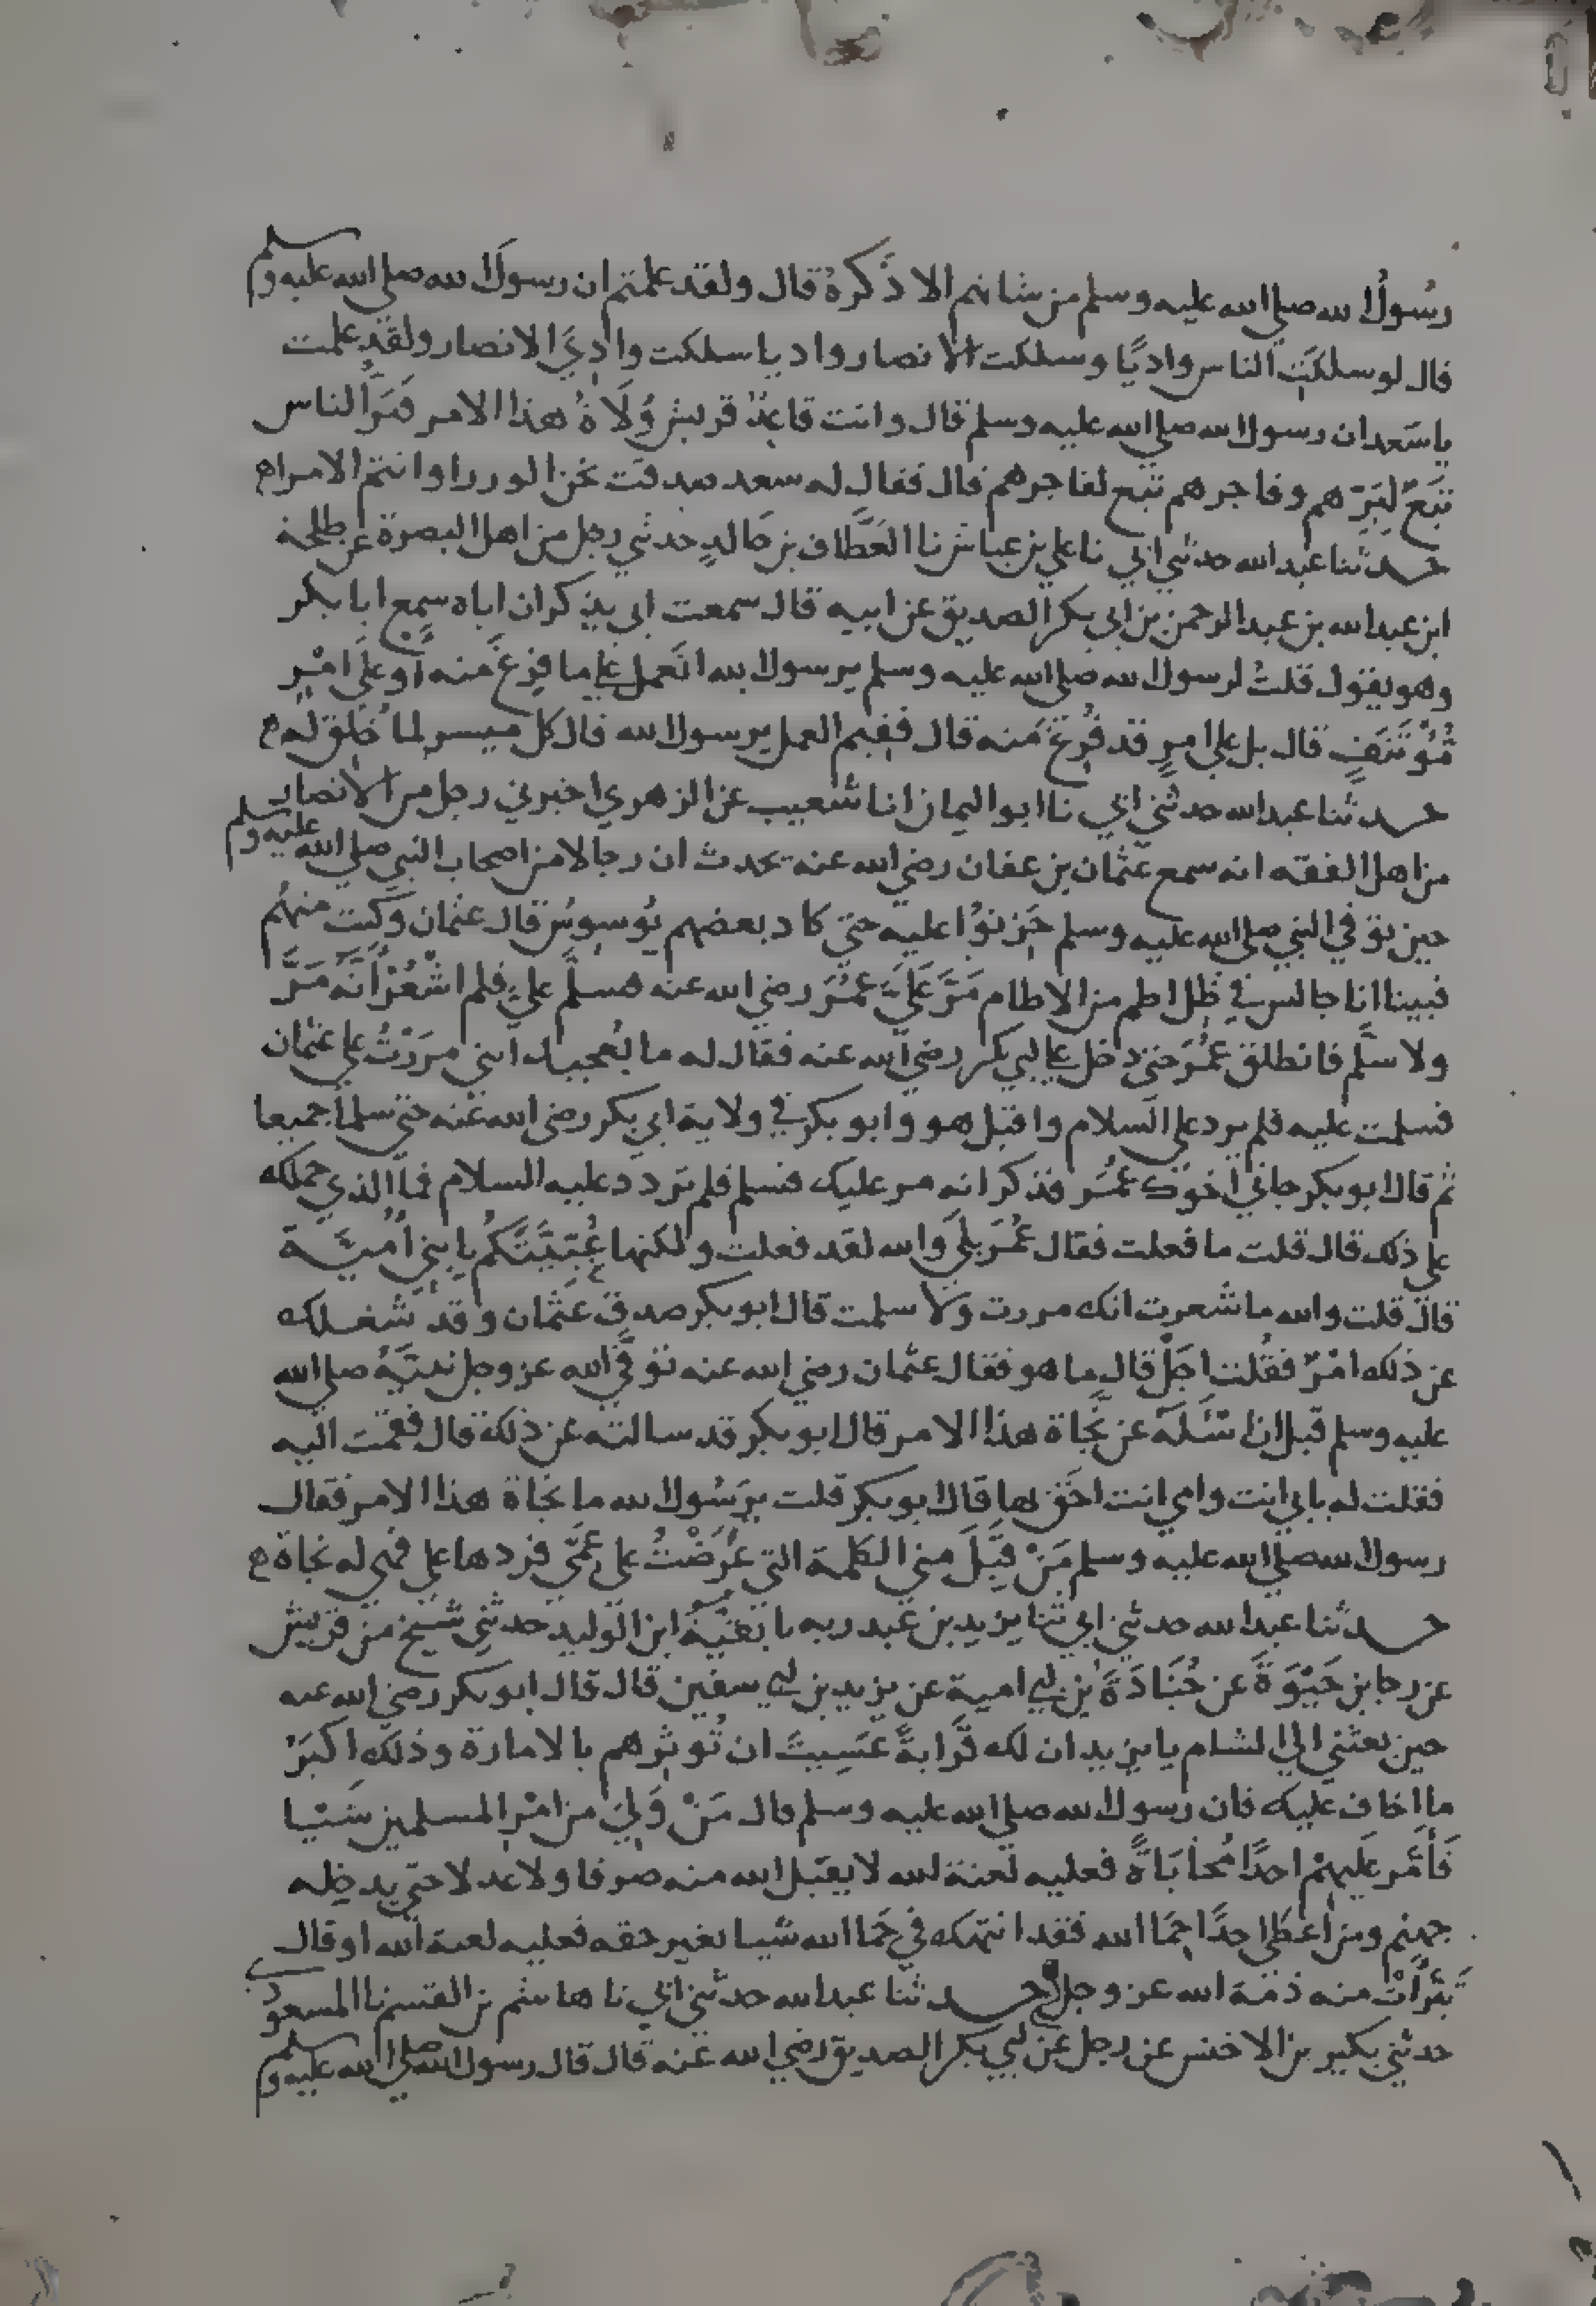 رسُولُ الله صلي الله عليه وسلم من شانهم الا ذَكَرهُ قال ولقد علمتم ان رسولَ الله صلي الله عليه وسلم
قال لو سلكتِ الناس واديًا وسلكت الانصار واديا سلكت واديَ الانصار ولقد علمت
يا سَعد ان رسول الله صلي الله عليه وسلم قال وانت قاعِدٌ قريش وُلَاةُ هذا الامر فبَرُّ الناس
تبَعٌ لِبَرِّهم وفاجرهم تبع لفاجرهم قال فقال له سعد صدقت نحن الوزرا وانتم الامرا ه
حدثنا عبد الله حدثني ابي نا علي بن عياش نا العَطَّاف بن خالدٍ حدثني رجل من اهل البصرة عن طلحة
ابن عبد الله بن عبد الرحمن بن ابي بكر الصديق عن ابيه قال سمعت ابي يذكر ان اباه سمع ابا بكر
وهو يقول قلتُ لرسول الله صلي الله عليه وسلم يرسول الله انَعمل علي ما فُرِغَ منه أو علَي امْرٍ
مُؤتَنَفٍ قال بل علي امرٍ قد فُرِغَ منه قال ففيم العمل يرسول الله قال كل ميسر لما خُلِق له ه
حدثنا عبد الله حدثني ابي نا ابو اليمان انا شعيب عن الزهري اخبرني رجل من الانصار
من اهل الفقه انه سمع عثمان بن عفان رضي الله عنه يحدث ان رجالا من اصحاب النبي صلي الله عليه وسلم
حين توفي النبي صلي الله عليه وسلم حَزِنوُا عليه حتي كاد بعضهم يُوسوِسُ قال عثمان وكنت منهُم
فبينا انا جالس في ظِل اطم من الاطام مَرَّ عَلَيَّ عمُرَ رضي الله عنه فسلَّم عليّ فلم اشْعُرْ أنَّه مَرَّ
ولا سلَّم فانطلق عمُرَ حتي دخل علي ابي بكر رضي الله عنه فقال له ما يُعجبك انني مرَرْتُ علي عثمان
فسلمت عليه فلم يرد علي السلام واقبل هو وابو بكر في ولاية ابي بكر رضي الله عنه حتي سلما جميعا
ثم قال ابو بكر جاني اخوك عمُر فذكر انه مر عليك فسلم فلم تردد عليه السلام فما الذي حملك
علي ذلك قال قلت ما فعلت فقال عُمَر بلَي والله لقد فعلت ولكنها عُبِّيَّتَكُم يا بني أميَّة
قال قلت والله ما شعرت انك مررت ولا سلمت قال ابو بكر صدق عثمان وقد شغلك
عن ذلك امْرٌ فقُلت اجَلْ قال ما هو فقال عثمان رضي الله عنه توفَّي الله عز وجل نبيَّهُ صلي الله
عليه وسلم قبل ان نسْئَلَه عن نجاة هذا الامر قال ابو بكر قد سالته عن ذلك قال فقمت اليه
فقلت له بابي انت وامي انت احَق بها قال ابو بكر قلت يرَسُول الله ما نجاة هذا الامر فقال
رسول الله صلي الله عليه وسلم مَنْ قَبِلَ مني الكلمة التي عَرَضْتُ علي عمّي فردها علي فهي له نجاة ه
حدثنا عبد الله حدثني ابي ثنا يزيد بن عبد ربه نا بَقيَّةُ ابن الوليد حدثني شيخ من قريش
عن رجا بن حَيْوَةَ عن جُنَادَةَ بْن ابي امية عن يزيد بن ابي سفين قال قال ابو بكر رضي الله عنه
حين بعثني الي الشام يا يزيد ان لك قَرابةً عَسَيتَ ان تُوثرهم بالامارة وذلك اكبَرُ
ما اخاف عليك فان رسول الله صلي الله عليه وسلم قال مَنْ وَلِيَ من امْرِ المسلمين شَيْيا
فأمَّر عليهمْ احدًا مُحابَاةً فعليه لعنة الله لا يقبَل الله منه صرفا ولا عدلا حتي يدخله
جهنم ومن اعطَي احدًا حِمَا الله فقد انتهك في حَمَا الله شيا بغير حقه فعليه لعنة الله او قال
تبَرَّأتْ منه ذمة الله عز وجل ه حدثنا عبد الله حدثني ابي نا هاشم بن القسم نا المسعودي
حدثني بكير بن الاخنس عن رجل عن ابي بكر الصديق رضي الله عنه قال قال رسول الله صلي الله عليه وسلم